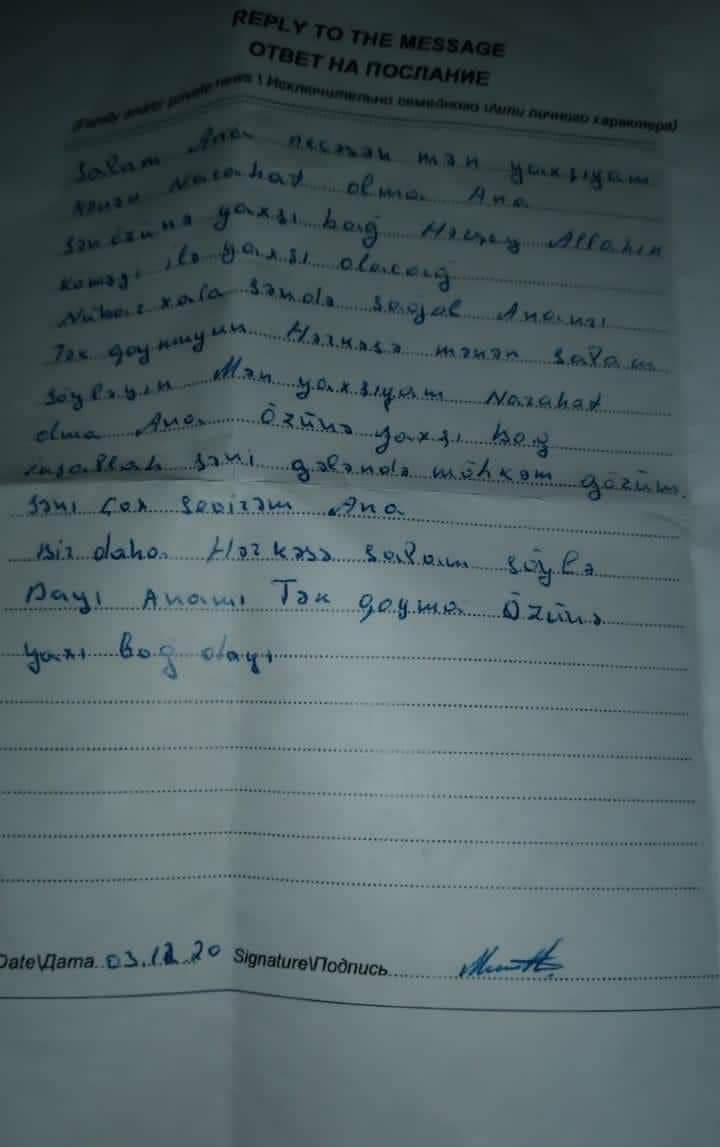 REPLY TO THE MESSAGE
ОТВЕТ НА ПОСЛАНИЕ
(Family and/or private news \ Исключительно семейного и/или личного характера)
Salam Ana necəsən mən yaxşıyam
Narahat olma Ana
Sən özünə yaxşı bağ Hərşey Allahın
köməyi ilə yaxşı olacağ
xala səndə sağal Ananı
Tək qoymuyun Hərkəsə mənən salam
söyləyin Mən yaxşıyam Narahat
olma Ana Özünə yaxşı bağ
inşallah səni gələndə möhkəm
səni çox sevirəm Ana
Bir daha Hərkəsə salam söylə
Dayı Anamı Tək qoyma Özünə
yaxı bağ dayı
Date\Дата 03.12.20 Signature\Подпись